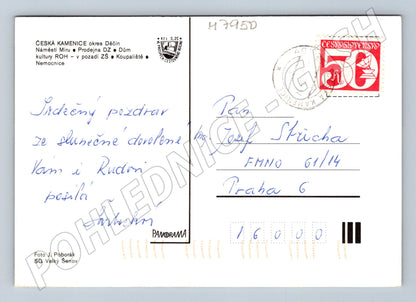 M7950
ČESKÁ KAMENICE okres Děčín
Náměstí Míru ● Prodejna DZ ● Dům
kultury ROH – v pozadí ZŠ ● Koupaliště ●
Nemocnice
ČESKOSLOVENSKO
50
Srdečný pozdrav
ze slunečné dovolené
Vám i
posílá
Pan
Josef
FMNO 61/14
Praha 6
16000
Foto J.
SG Velký Šenov
PANORAMA
POHLEDNICE